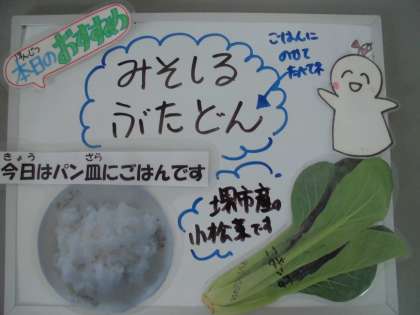 ほんじつ
本日のおすすめ
みそしる
ぶたどん
ごはんに
のせて
たべてネ
きょう さら
今日はパン皿にごはんです
堺市産の
小松菜です